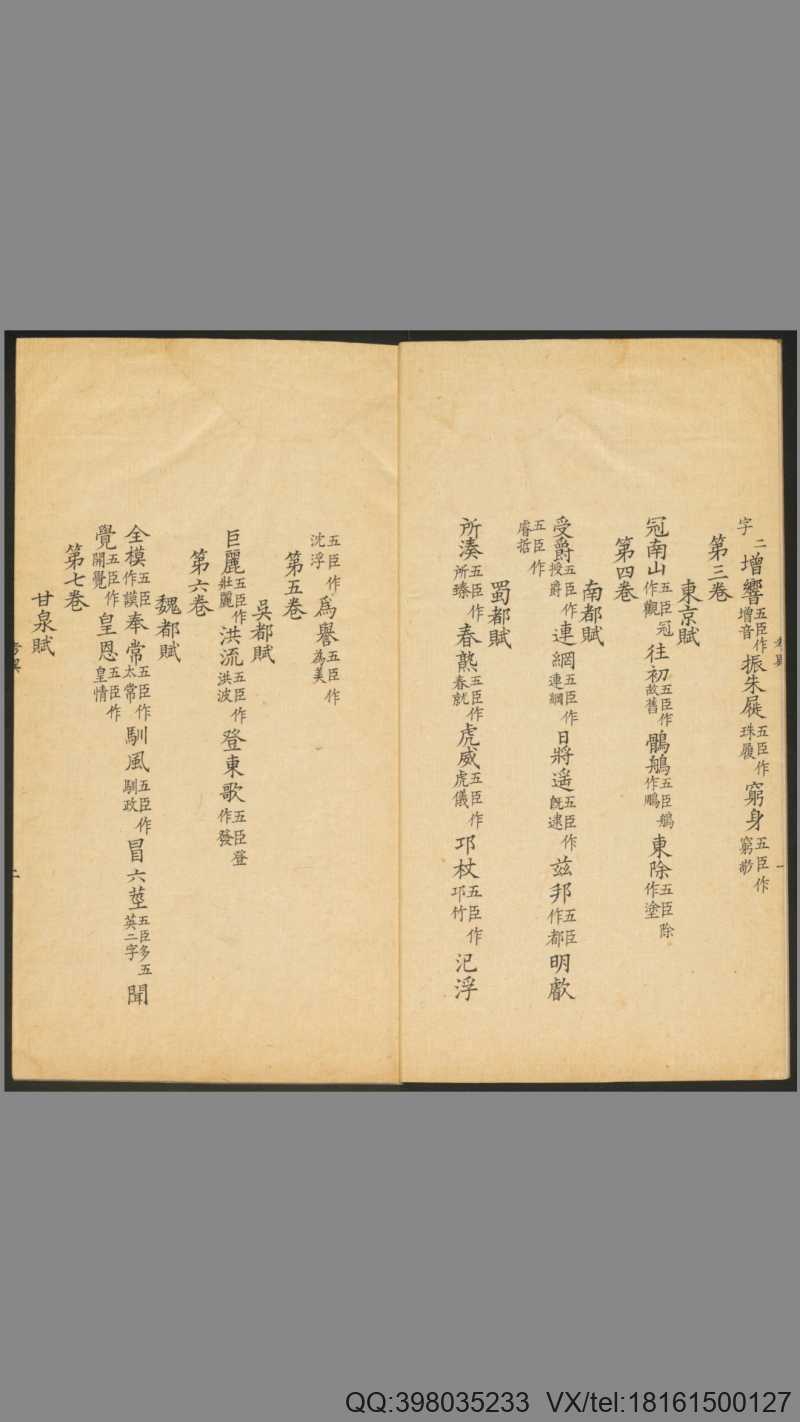 字二增響五臣作增音振朱屣五臣作珠履窮身五臣作窮
第三卷
東京賦
冠南山五臣冠作觀往初五臣作故舊鶻鵃五臣鵃作鵰東除五臣除作塗
第四卷
南都賦
受爵五臣作授爵連網五臣作連綱日將遥五臣作旣逮兹邦五臣作都明
五臣作睿哲
蜀都賦
所湊五臣作所臻春熟五臣作春就虎威五臣作虎儀邛杖五臣作邛竹汜浮
五臣作沈浮爲譽五臣作爲美
第五卷
吳都賦
巨麗五臣作壯麗洪流五臣作洪波登東歌五臣登作發
第六卷
魏都賦
全模五臣作謨奉常五臣作太常馴風五臣作馴政冒六莖五臣多五英二字聞
覺五臣作開覺皇恩五臣作皇情
第七卷
甘泉賦
考異
二
考異
一
QQ:398035233 VX/tel:18161500127